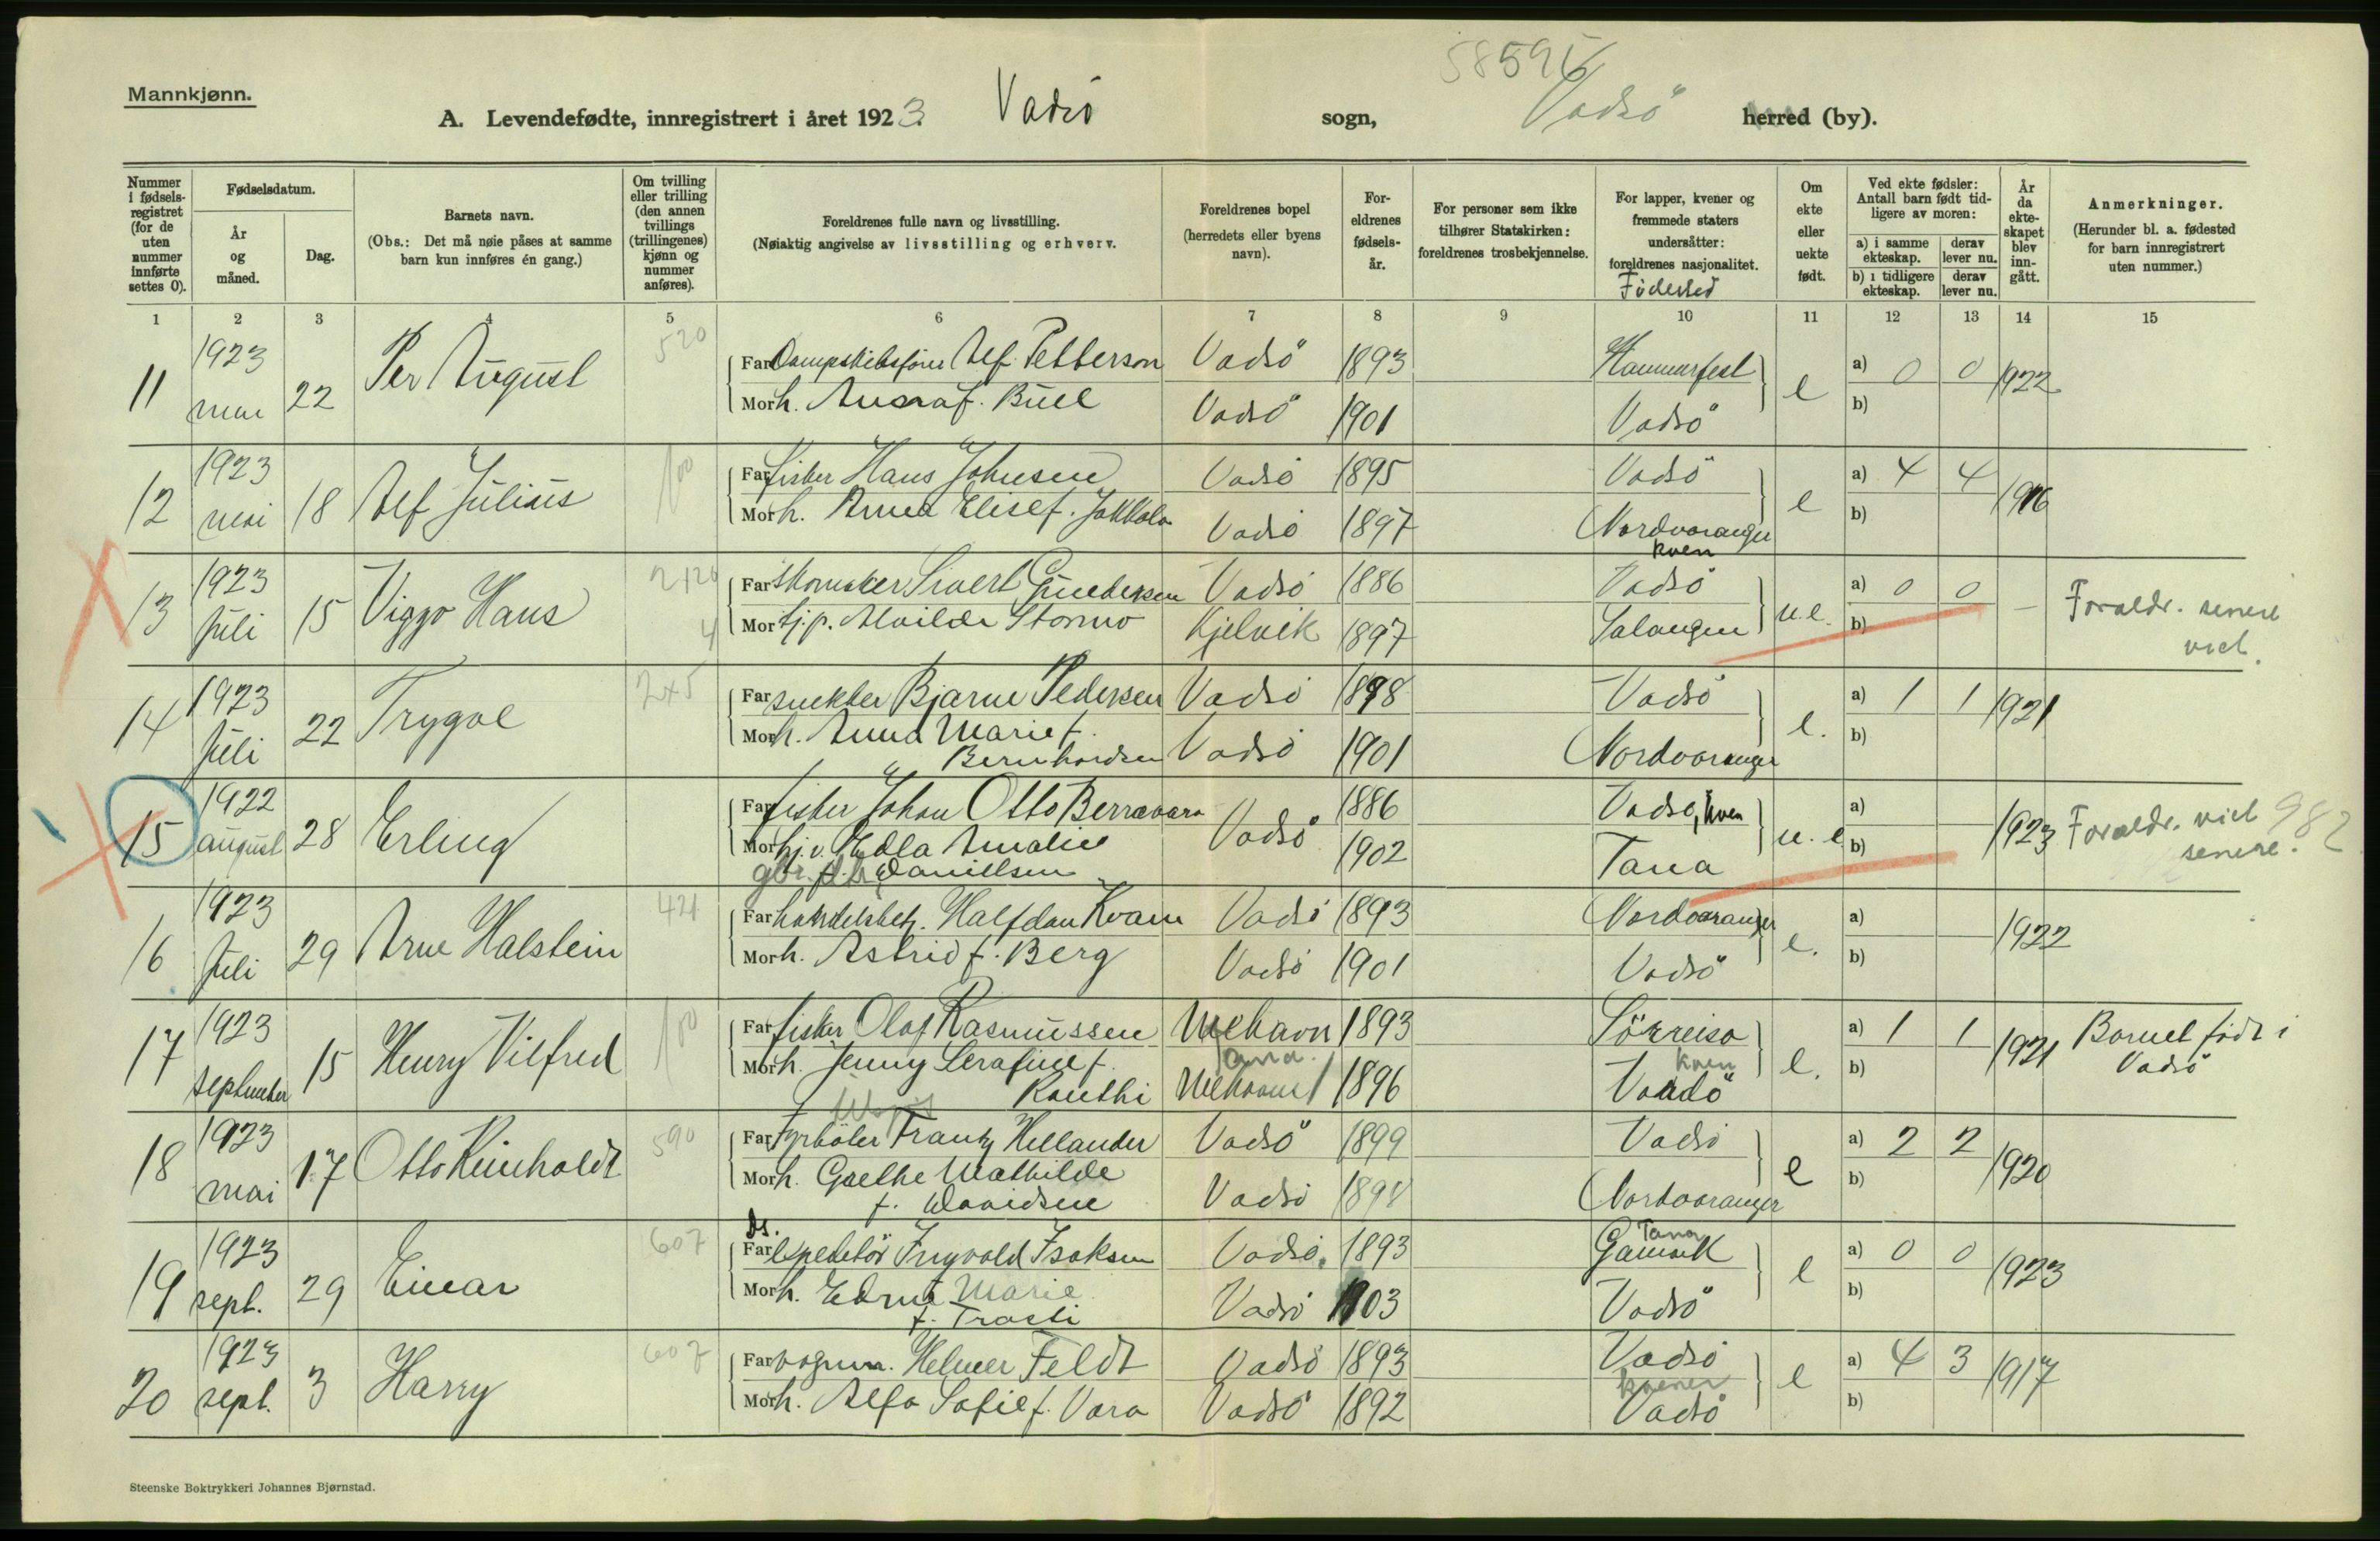 58595
Mannkjønn.
A. Levendefødte, innregistrert i året 1923. Vadsö sogn, Vadsö herred (by).
Nummer i fødsels-registret (for de uten nummer innførte settes 0).
Fødselsdatum.
År og måned.
Dag.
Barnets navn.
(Obs.: Det må nøie påses at samme barn kun innføres én gang.)
Om tvilling eller trilling (den annen tvillings (trillingenes) kjønn og nummer anføres).
Foreldrenes fulle navn og livsstilling.
(Nøiaktig angivelse av livsstilling og erhverv.
Foreldrenes bopel (herredets eller byens navn).
For-eldrenes fødsels-år.
For personer som ikke tilhører Statskirken: foreldrenes trosbekjennelse.
For lapper, kvener og fremmede staters undersåtter: foreldrenes nasjonalitet.
Födested
Om ekte eller uekte født.
Ved ekte fødsler: Antall barn født tid-ligere av moren:
a) i samme ekteskap. derav lever nu.
b) i tidligere ekteskap. derav lever nu.
År da ekte-skapet blev inn-gått.
Anmerkninger.
(Herunder bl. a. fødested for barn innregistrert uten nummer.)
1 2 3 4 5 6 7 8 9 10 11 12 13 14 15
11 1923 mai 22 Per August 520
Far Dampskibsfører Alf Petterson Vadsö 1893 Hammerfest e a) 0 0 1922
Mor h. f. Buel Vadsö 1901 Vadsö b)
12 1923 mai 18 Alf Julius 100
Far fisker Hans Johnsen Vadsö 1895 Vadsö e a) 4 4 1916
Mor h. Anna Elise f. Jakkola Vadsö 1897 Nordvaranger b)
kven
13 1923 Juli 15 Viggo Hans 2120 4
Far skomaker Sivert Gundersen Vadsö 1886 Vadsö u.e. a) 0 0 — Foraeldr. senere viet.
Mor tj.p. Alvilde Stormo Kjelvik 1897 Salangen b)
14 1923 Juli 22 Trygve 2x5
Far snekker Bjarne Pedersen Vadsö 1898 Vadsö e. a) 1 1 1921
Mor h. Anna Marie f. Bernhardsen Vadsö 1901 Nordvaranger b)
15 1922 august 28 Erling
Far fisker Johan Otto Berravara Vadsö 1886 Vadsö, kven u.e a) 1923 Foraeldr. viet senere. 982
Mor Hedla Amalie Daniellsen 1902 Tana b)
16 1923 Juli 29 Arne Halstein 421
Far handelsbetj. Halfdan Kvam Vadsö 1893 Nordvaranger e. a) 1922
Mor h. Astrid f. Berg Vadsö 1901 Vadsö b)
17 1923 september 15 Henry Vilfred 100
Far fisker Olaf Rasmussen Mehavn 1893 Sörreisa e. a) 1 1 1921 Barnet födt i Vadsö
Tana. kven
Mor h. Jenny Serafine f. Ranthi Mehavn 1896 Vadsö b)
18 1923 mai 17 Otto Reinholdt 590
Far fyrböter Frantz Hellander Vadsö 1899 Vadsö e a) 2 2 1920
Mor h. Grethe Mathilde f. Davidsen Vadsö 1898 Nordvaranger b)
19 1923 sept. 29 Einar 607
Far ds. expeditör Ingvald Isaksen Vadsö. 1893 Gamvik Tana e a) 0 0 1923
Mor h. Edna Marie f. Trasti Vadsö 1903 Vadsö b)
20 1923 sept. 3 Harry 607
Far vognm. Helmer Feldt Vadsö 1893 Vadsö e a) 4 3 1917
kvener
Mor h. Alfa Sofie f. Vara Vadsö 1892 Vadsö b)
Steenske Boktrykkeri Johannes Bjørnstad.